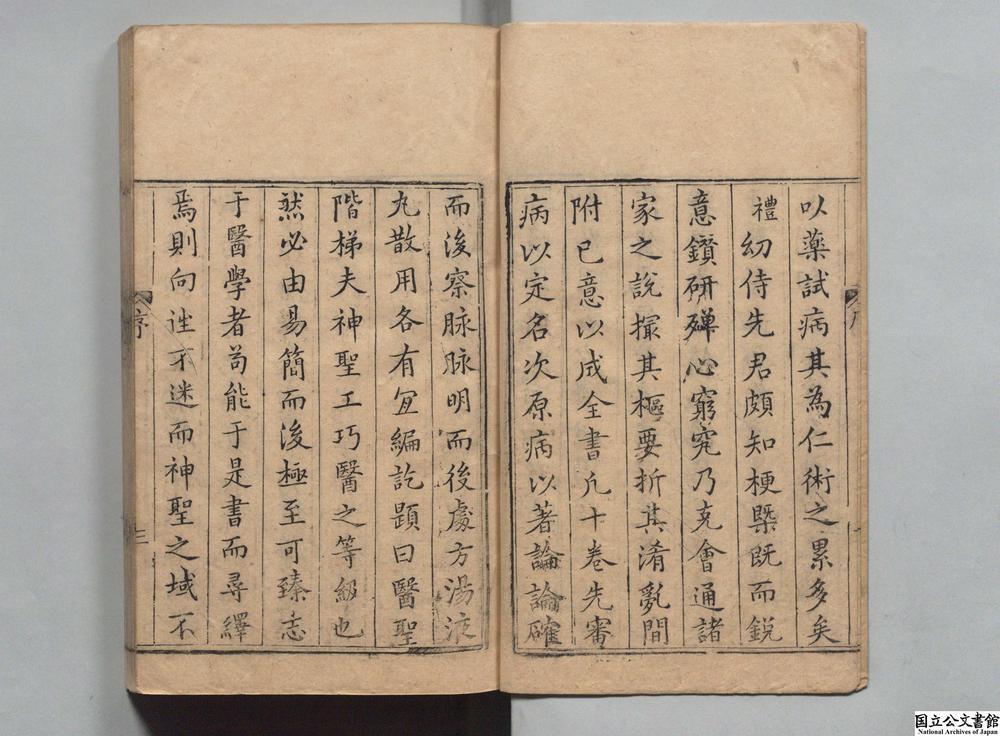 以藥試病其為仁術之累多矣
禮幼侍先君頗知梗槩既而銳
意鑽研殫心窮究乃克會通諸
家之說撮其樞要折其淆亂間
附己意以成全書凡十卷先審
病以定名次原病以著論論確
而後察脉脉明而後處方湯液
丸散用各有宜編訖題曰醫聖
階梯夫神聖工巧醫之等級也
然必由易簡而後極至可臻志
于醫學者苟能于是書而尋繹
焉則向迷不迷而神聖之域不
序
三
国立公文書館
National Archives of Japan